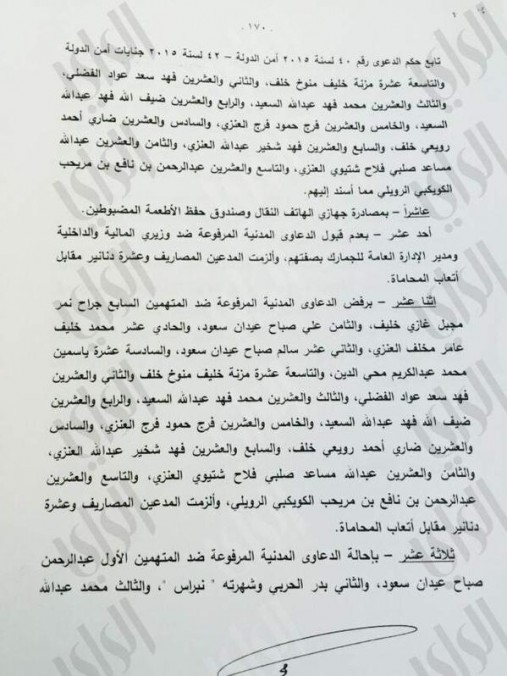 - ١٧٠ -
تابع حكم الدعاوى رقم ٤٠ لسنة ٢٠١٥ أمن الدولة – ٤٢ لسنة ٢٠١٥ جنايات أمن الدولة
والتاسعة عشرة مزنة خليف منوخ خلف، والثاني والعشرين فهد سعد عواد الفضلي،
والثالث والعشرين محمد فهد عبدالله السعيد، والرابع والعشرين ضيف الله فهد عبدالله
السعيد، والخامس والعشرين فرج حمود فرج العنزي، والسادس والعشرين ضاري أحمد
رويعي خلف، والسابع والعشرين فهد شخير عبدالله العنزي، والثامن والعشرين عبدالله
مساعد صلبي فلاح شتيوي العنزي، والتاسع والعشرين عبدالرحمن بن نافع بن مريحب
الكويكبي الرويلي مما أسند إليهم.
عاشراً – بمصادرة جهازي الهاتف النقال وصندوق حفظ الأطعمة المضبوطين.
أحد عشر – بعدم قبول الدعاوى المدنية المرفوعة ضد وزيري المالية والداخلية
ومدير الإدارة العامة للجمارك بصفتهم، وألزمت المدعين المصاريف وعشرة دنانير مقابل
أتعاب المحاماة.
إثنا عشر – برفض الدعاوى المدنية المرفوعة ضد المتهمين السابع جراح نمر
مجبل غازي خليف، والثامن علي صباح عيدان سعود، والحادي عشر محمد خليف
عامر مخلف العنزي، والثاني عشر سالم صباح عيدان سعود، والسادسة عشرة ياسمين
محمد عبدالكريم محي الدين، والتاسعة عشرة مزنة خليف منوخ خلف والثاني والعشرين
فهد سعد عواد الفضلي، والثالث والعشرين محمد فهد عبدالله السعيد، والرابع والعشرين
ضيف الله فهد عبدالله السعيد، والخامس والعشرين فرج حمود فرج العنزي، والسادس
والعشرين ضاري أحمد رويعي خلف، والسابع والعشرين فهد شخير عبدالله العنزي،
والثامن والعشرين عبدالله مساعد صلبي فلاح شتيوي العنزي، والتاسع والعشرين
عبدالرحمن بن نافع بن مريحب الكويكبي الرويلي، وألزمت المدعين المصاريف وعشرة
دنانير مقابل أتعاب المحاماة.
ثلاثة عشر – بإحالة الدعاوى المدنية المرفوعة ضد المتهمين الأول عبدالرحمن
صباح عيدان سعود، والثاني بدر الحربي وشهرته " نبراس "، والثالث محمد عبدالله
الراي